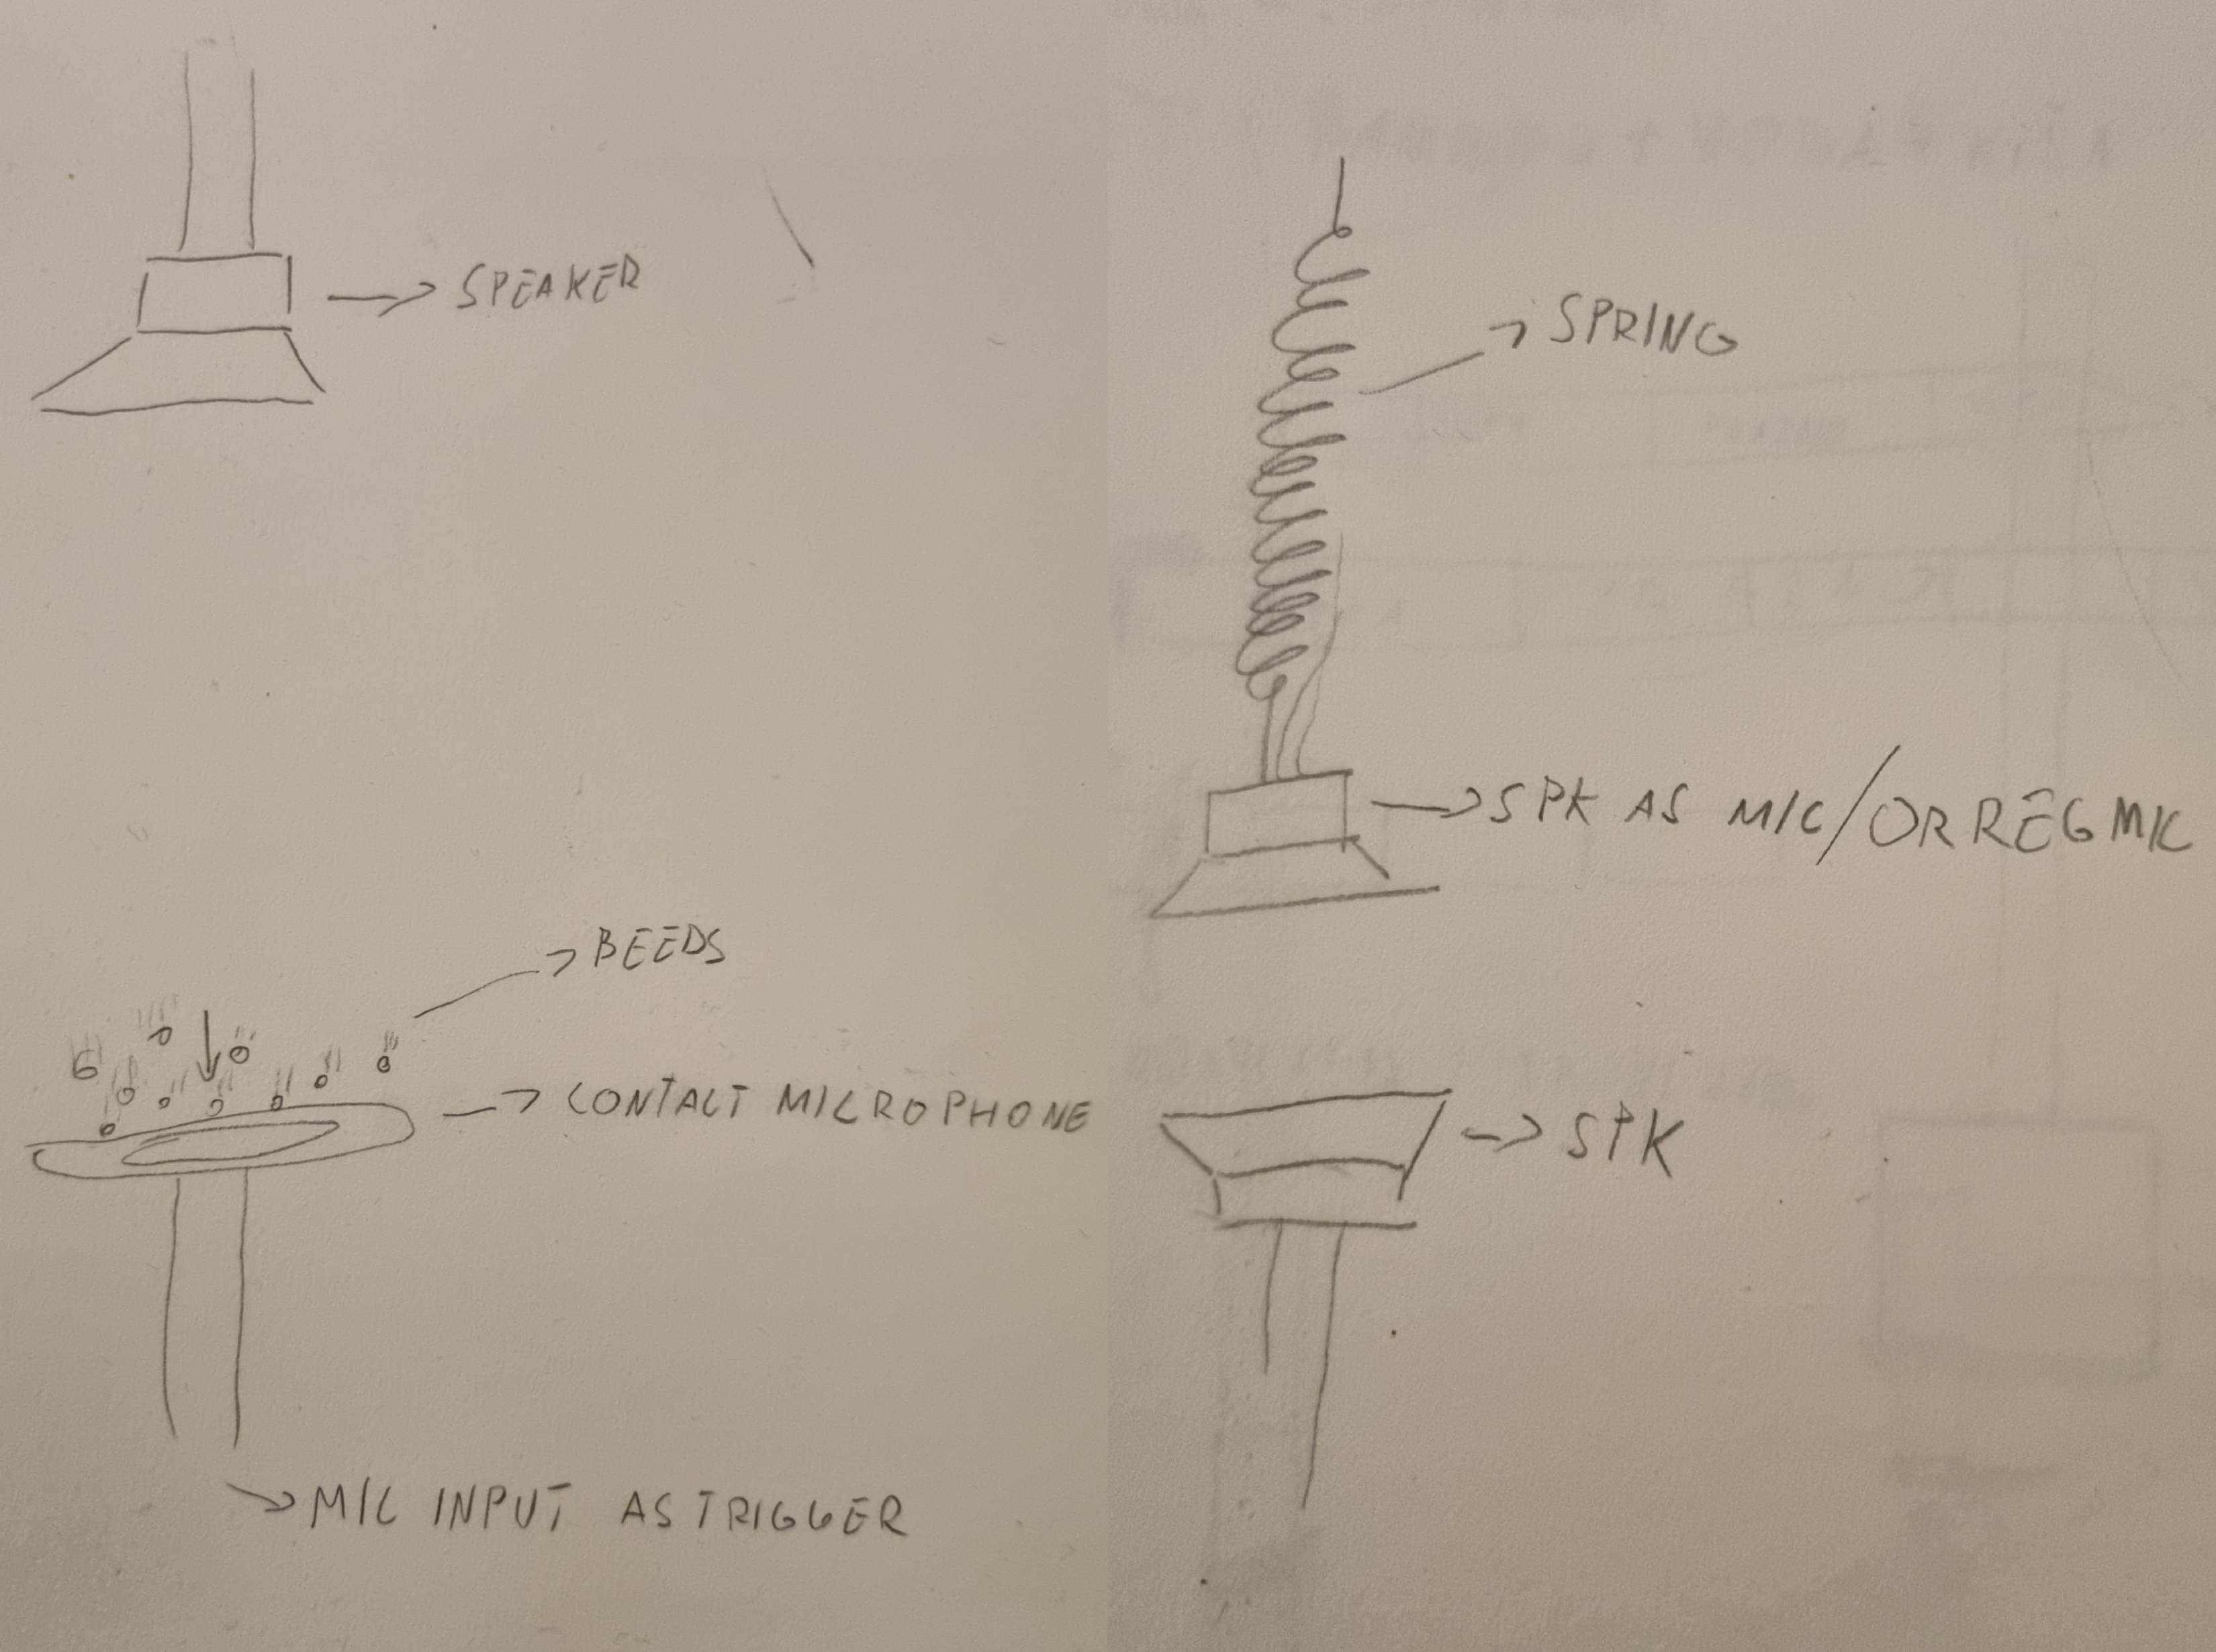 SPEAKER
BEEDS
CONTACT MICROPHONE
MIC INPUT AS TRIGGER
SPRING
SPK AS MIC/OR REG MIC
SPK